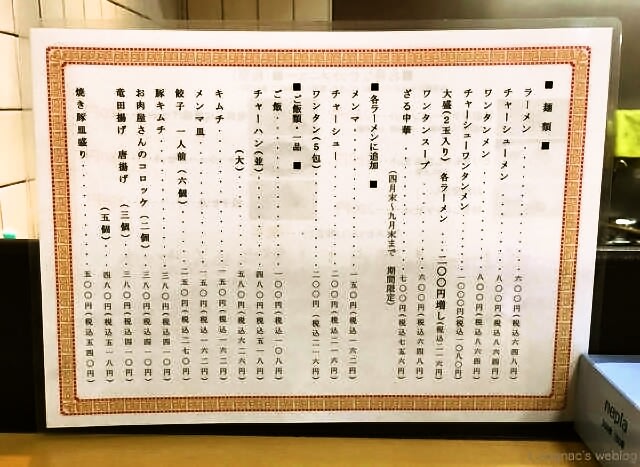 ■ 麺 類 ■
ラーメン 六〇〇円(税込六四八円)
チャーシューメン 八〇〇円(税込八六四円)
ワンタンメン 八〇〇円(税込八六四円)
チャーシューワンタンメン 一〇〇〇円(税込一〇八〇円)
大盛(2玉入り) 各ラーメン 二〇〇円増し(税込二一六円)
ワンタンスープ 六〇〇円(税込六四八円)
ざる中華 七〇〇円(税込七五六円)
(四月末~九月末まで 期間限定)
■ 各ラーメンに追加 ■
メンマ 一五〇円(税込一六二円)
チャーシュー 二〇〇円(税込二一六円)
ワンタン(5包) 二〇〇円(税込二一六円)
■ ご飯類・一品 ■
ご飯 一〇〇円(税込一〇八円)
チャーハン(並) 四八〇円(税込五一八円)
(大) 五八〇円(税込六二六円)
キムチ 一五〇円(税込一六二円)
メンマ皿 一五〇円(税込一六二円)
餃子 一人前(六個) 二五〇円(税込二七〇円)
豚キムチ 三八〇円(税込四一〇円)
お肉屋さんのコロッケ(二個) 三八〇円(税込四一〇円)
竜田揚げ 唐揚げ(三個) 三八〇円(税込四一〇円)
(五個) 四八〇円(税込五一八円)
焼き豚皿盛り 五〇〇円(税込五四〇円)
nepia
's weblog